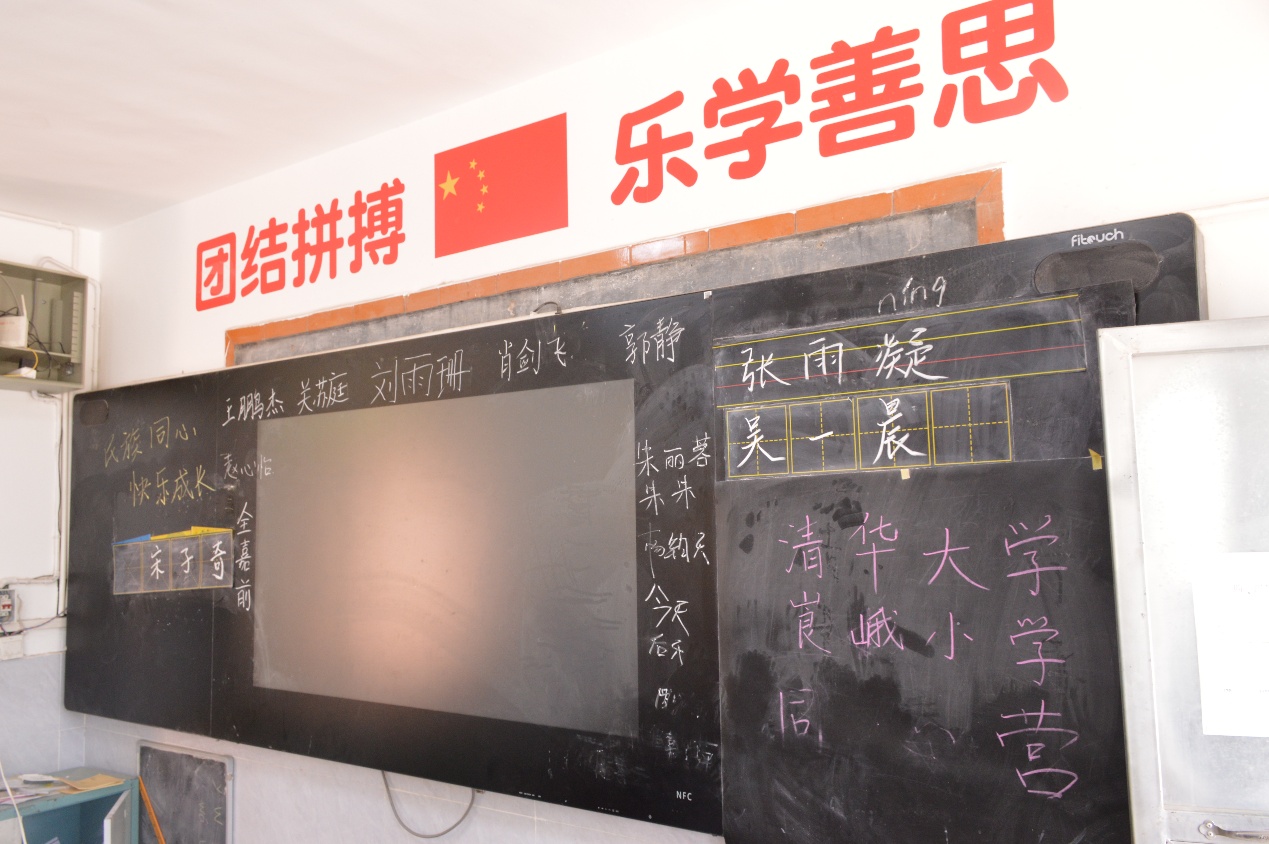 团结拼搏 乐学善思
fitouch
níng
王鹏杰 关苏庭 刘雨珊 肖剑飞 郭静
张雨凝
吴一晨
民族同心
快乐成长
赵心怡
宋子奇
全嘉前
朱丽蓉
朱朱
今天
后乐
清华大学
崀峨小学
同 营
NFC